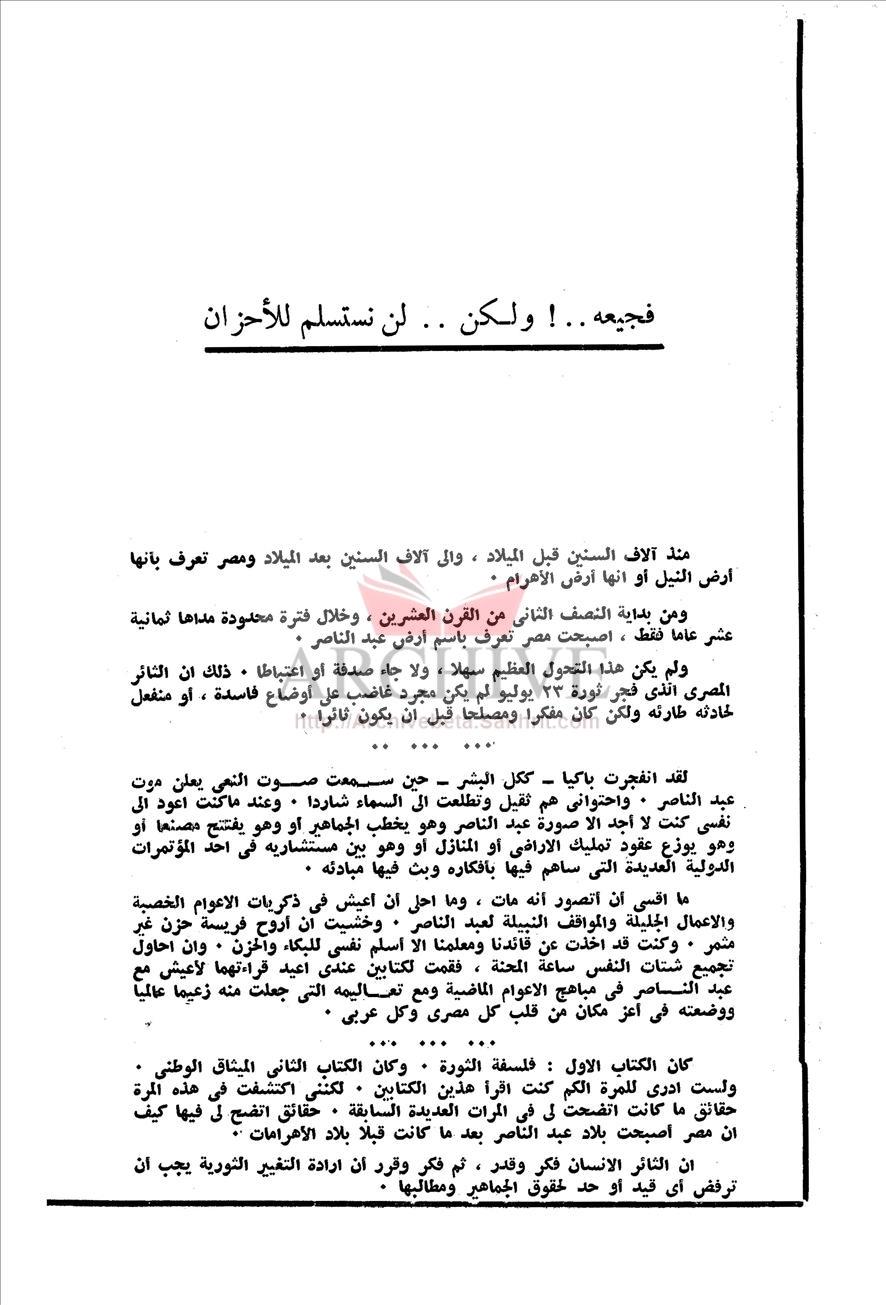 فجيعه ..! ولـكن .. لن نستسلم للأحزان
منذ آلاف السنين قبل الميلاد ، والى آلاف السنين بعد الميلاد ومصر تعرف بأنها
أرض النيل أو انها أرض الأهرام ٠
ومن بداية النصف الثانى من القرن العشرين ، وخلال فترة محدودة مداها ثمانية
عشر عاما فقط ، اصبحت مصر تعرف باسم أرض عبد الناصر ٠
ولم يكن هذا التحول العظيم سهلا ، ولا جاء صدفة أو اعتباطا ٠ ذلك ان الثائر
المصرى الذى فجر ثورة ٢٣ يوليو لم يكن مجرد غاضب على أوضاع فاسدة ، أو منفعل
لحادثه طارئه ولكن كان مفكرا ومصلحا قبل ان يكون ثائرا ٠
ARCHIVE
http://Archivebeta.Sakhrit.com
٠٠٠ ٠٠٠ ٠٠
لقد انفجرت باكيا ــ ككل البشر ــ حين ســمعت صــوت النعى يعلن موت
عبد الناصر ٠ واحتوانى هم ثقيل وتطلعت الى السماء شاردا ٠ وعند ماكنت اعود الى
نفسى كنت لا أجد الا صورة عبد الناصر وهو يخطب الجماهير أو وهو يفتتح مصنعا أو
وهو يوزع عقود تمليك الاراضى أو المنازل أو وهو بين مستشاريه فى احد المؤتمرات
الدولية العديدة التى ساهم فيها بأفكاره وبث فيها مبادئه ٠
ما اقسى أن أتصور أنه مات ، وما احلى أن أعيش فى ذكريات الاعوام الخصبة
والاعمال الجليلة والمواقف النبيلة لعبد الناصر ٠ وخشيت ان أروح فريسة حزن غير
مثمر ٠ وكنت قد اخذت عن قائدنا ومعلمنا الا أسلم نفسى للبكاء والحزن ٠ وان احاول
تجميع شتات النفس ساعة المحنة ، فقمت لكتابين عندى اعيد قراءتهما لأعيش مع
عبد النــاصر فى مباهج الاعوام الماضية ومع تعــاليمه التى جعلت منه زعيما عالميا
ووضعته فى أعز مكان من قلب كل مصرى وكل عربى ٠
٠٠٠ ٠٠٠ ٠٠٠
كان الكتاب الاول : فلسفة الثورة ٠ وكان الكتاب الثانى الميثاق الوطنى ٠
ولست ادرى للمرة الكم كنت اقرأ هذين الكتابين ٠ لكننى اكتشفت فى هذه المرة
حقائق ما كانت اتضحت لى فى المرات العديدة السابقة ٠ حقائق اتضح لى فيها كيف
ان مصر أصبحت بلاد عبد الناصر بعد ما كانت قبلا بلاد الأهرامات ٠
ان الثائر الانسان فكر وقدر ، ثم فكر وقرر أن ارادة التغيير الثورية يجب أن
ترفض أى قيد أو حد لحقوق الجماهير ومطالبها ٠